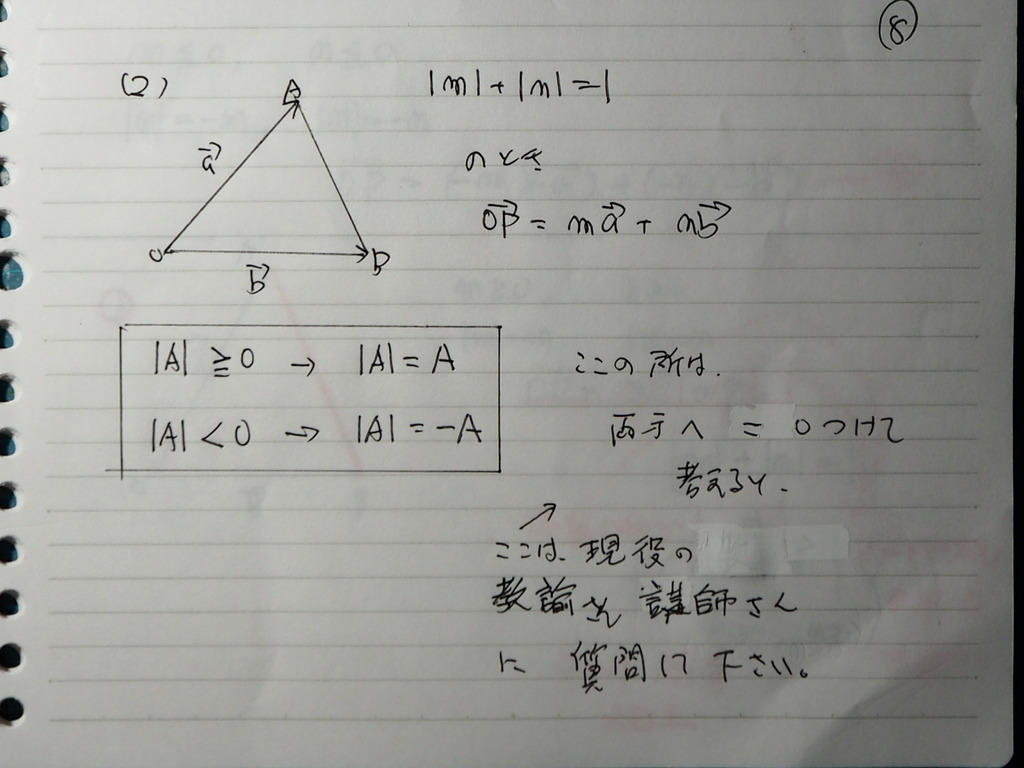 ⑧
(2)
|m|+|n|=1
のとき
OP→ = ma→ + nb→
A
a→
O
B
b→
|A| ≧ 0 → |A| = A
|A| < 0 → |A| = -A
ここの所は、
両方へ = 0つけて
考えると、
ここは、現役の
教諭さん 講師さん
に 質問して下さい。